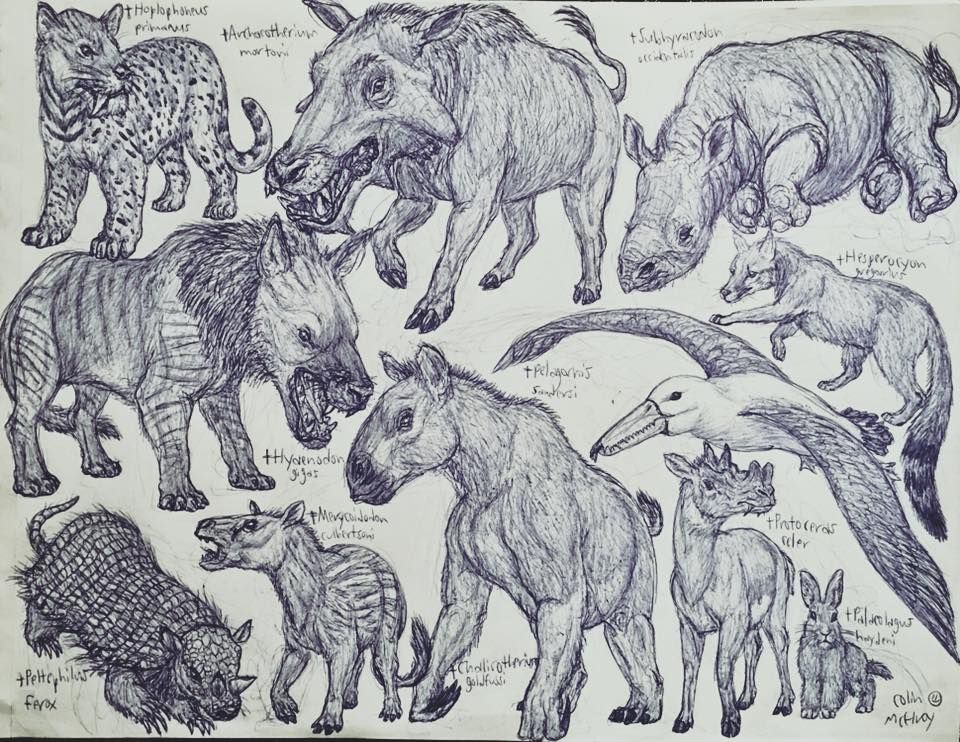 †Hoplophoneus
primaevus
†Archaeotherium
mortoni
†Subhyracodon
occidentalis
†Hesperocyon
gregarius
†Pelagornis
sandersi
†Hyaenodon
gigas
†Merycoidodon
culbertsoni
†Protoceras
celer
†Palaeolagus
haydeni
†Peltephilus
ferox
†Chalicotherium
goldfussi
Colin
McElroy